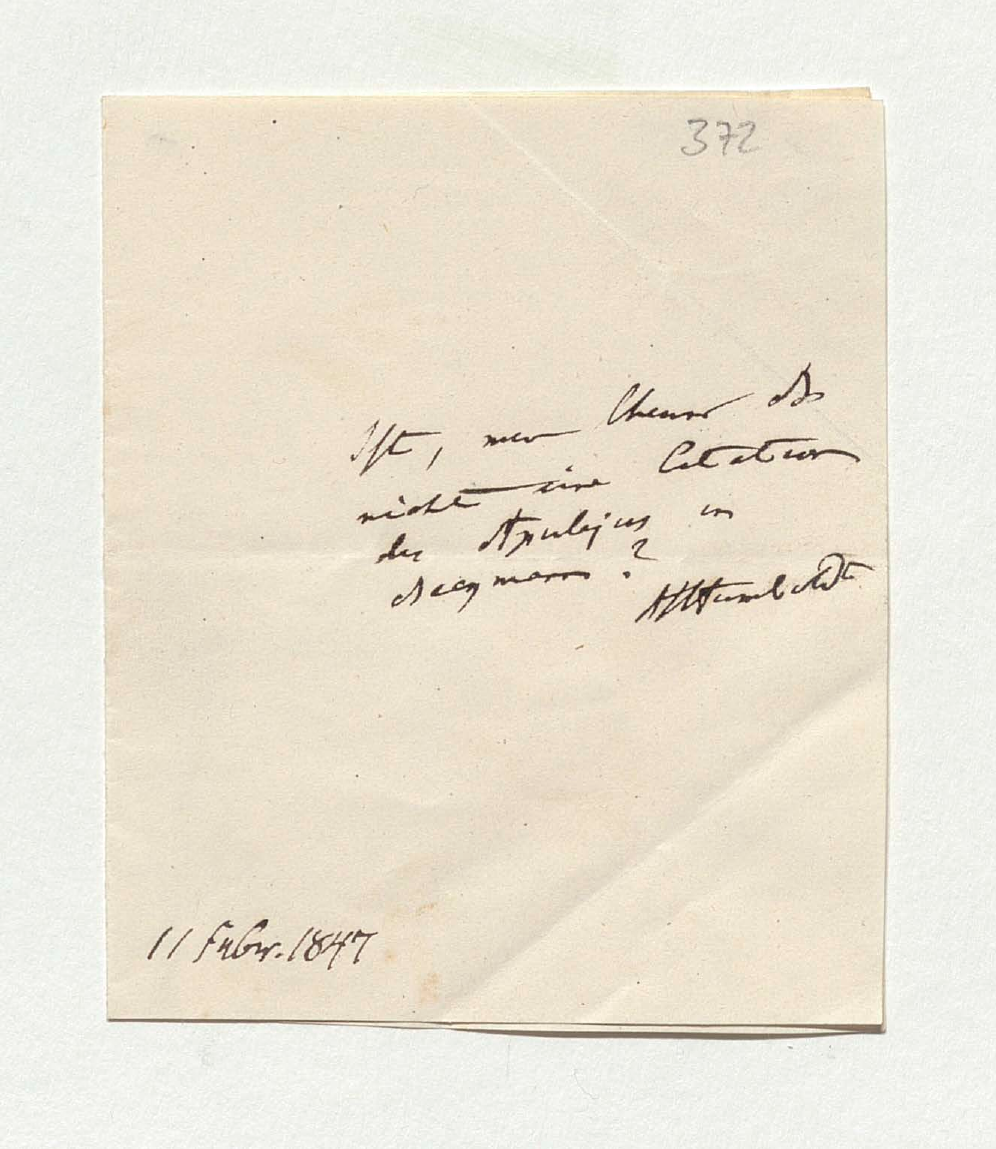 372
Ist, mein Theurer
nicht eine Citation
des Apulejus in
? 
AlHumboldt
11 Febr. 1847